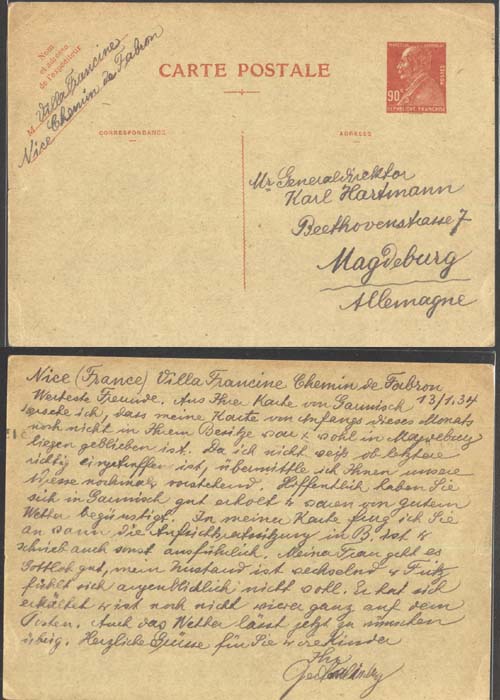 Nom
et adresse
de l'expéditeur
M. Villa Francine
Nice Chemin de Fabron
CARTE POSTALE
90c
POSTES
RÉPUBLIQUE FRANÇAISE
CORRESPONDANCE
ADRESSE
Mr Generaldirektor
Karl Hartmann
Beethovenstrasse 7
Magdeburg
Allemagne
Nice (France) Villa Francine Chemin de Fabron
13/1.34
Werteste Freunde. Aus Ihrer Karte von Garmisch
ich, dass meine Karte von Anfangs dieses Monats
noch nicht in Ihrem Besitze war & wohl in Magdeburg
liegen geblieben ist. Da ich nicht weiß ob letztere
richtig eingetroffen ist, übermittle ich Ihnen unsere
Adresse nochmals vorstehend. Hoffentlich haben Sie
sich in Garmisch gut erholt & waren von gutem
Wetter begünstigt. In meiner Karte frug ich Sie
an wann die Aufsichtsratssitzung in B. ist &
schrieb auch sonst ausführlich. Meine Frau geht es
Gottlob gut, mein Zustand ist wechselnd & Fritz
fühlt sich augenblicklich nicht wohl. Er hat sich
erkältet & ist noch nicht wieder ganz auf dem
Posten. Auch das Wetter lässt jetzt zu wünschen
übrig. Herzliche Grüsse für Sie & Ihre Kinder
Ihr